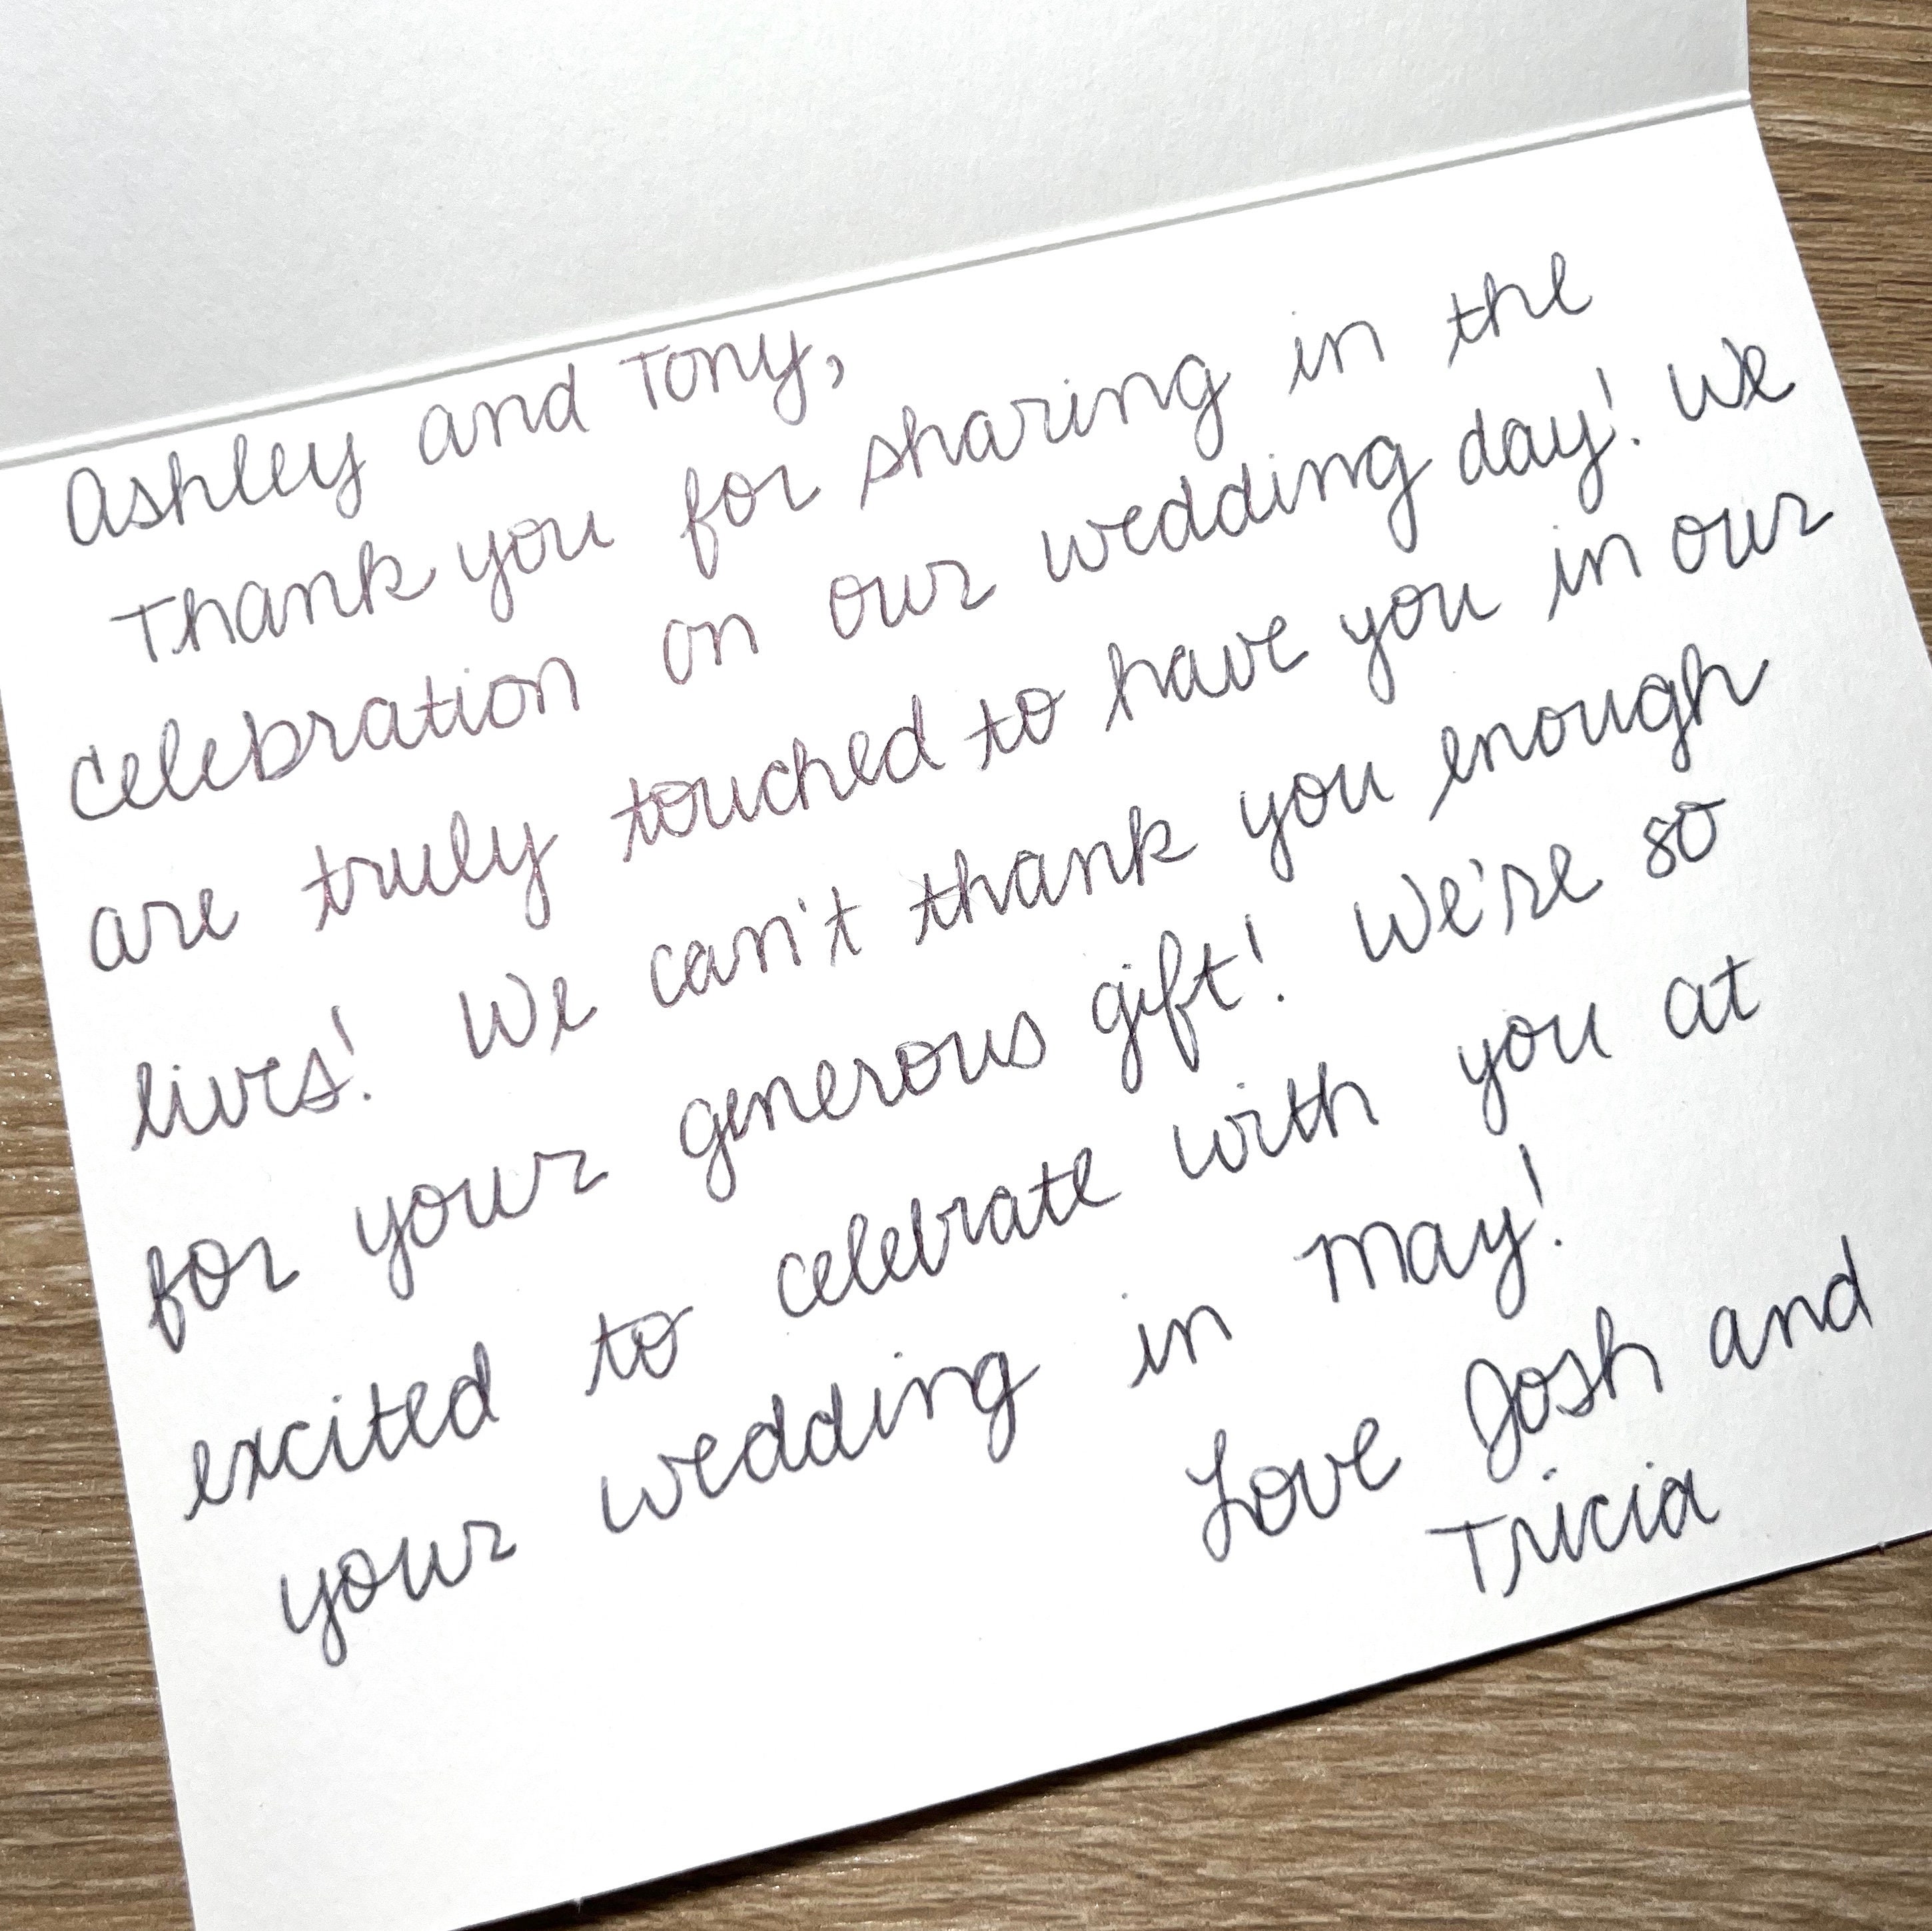 Ashley and Tony,
Thank you for sharing in the
celebration on our wedding day! We
are truly touched to have you in our
lives! We can't thank you enough
for your generous gift! We're so
excited to celebrate with you at
your wedding in May!
Love Josh and
Tricia